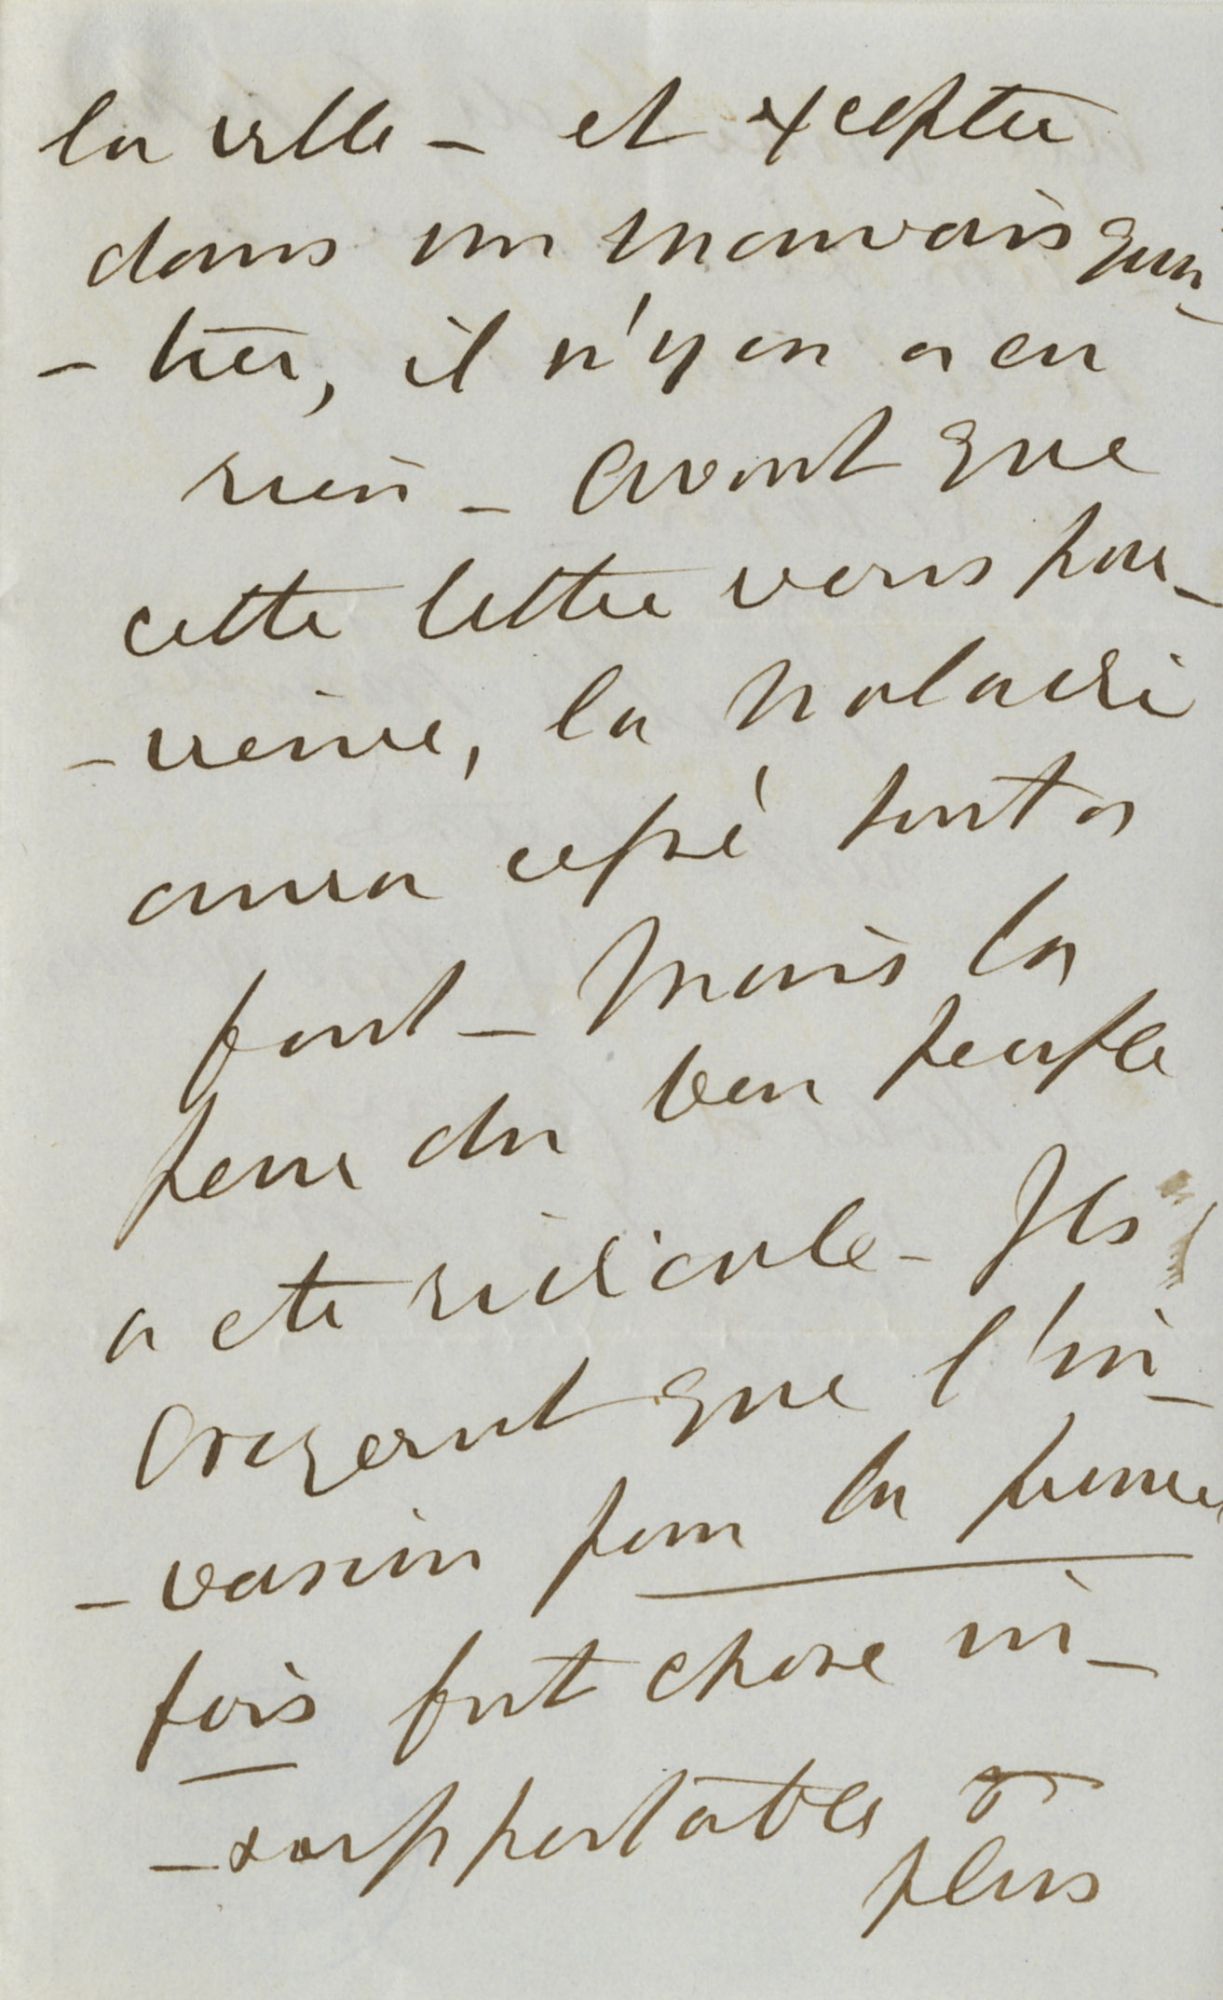 la ville - et excepter
dans un mauvais quar-
-tier, il n'y en a eu
rien - avant que
cette lettre vous par-
-vienne, la maladie
aura cessé tout a
fait - Mais la
peur du bon peuple
a ete ridicule - Ils
croyent que l'in-
-vasion pour la premier
fois fut chose in-
-supportable &
plus